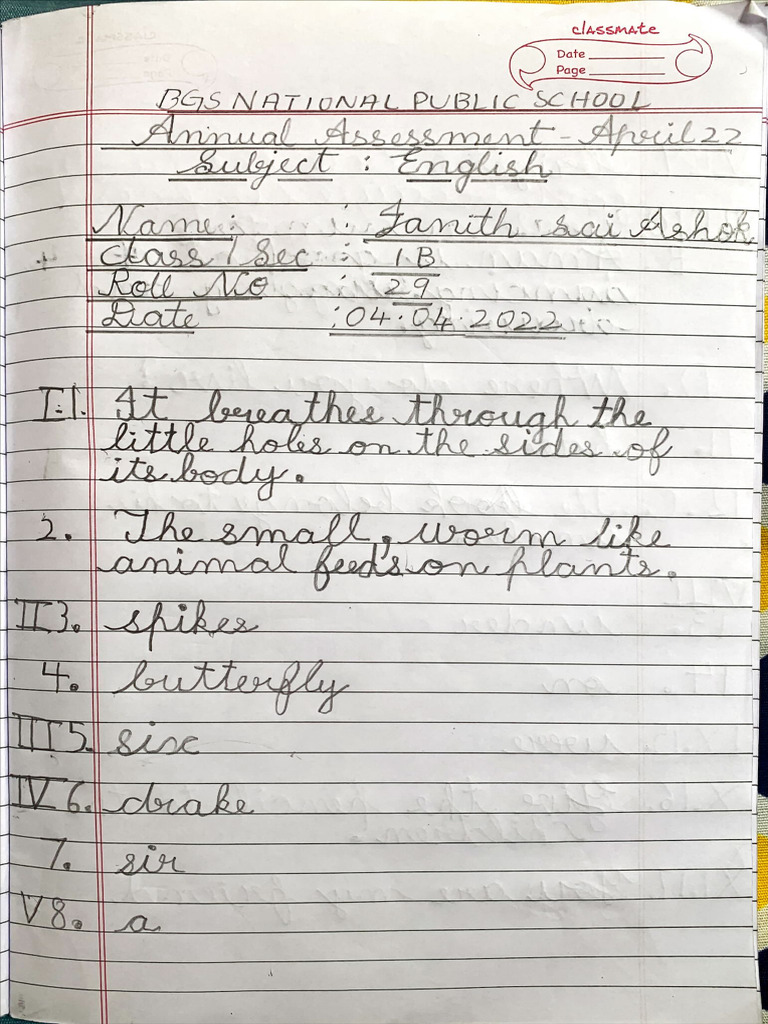 classmate
Date
Page
BGS NATIONAL PUBLIC SCHOOL
Annual Assessment - April 22
Subject : English
Name : : Janith sai Ashok
Class / Sec : 1 B
Roll No : 29
Date : 04.04.2022
I.1. It breathes through the
little holes on the sides of
its body.
2. The small, worm like
animal feeds on plants.
II 3. spikes
4. butterfly
III 5. six
IV 6. drake
7. sir
V 8. a